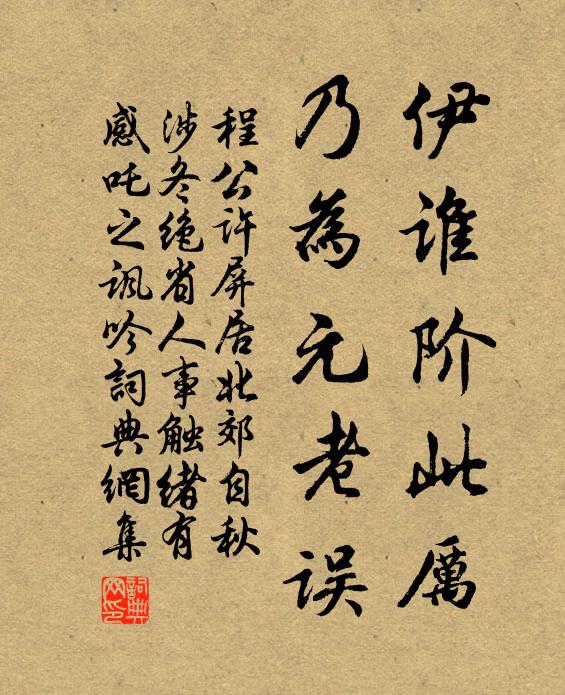 伊谁阶此厲
乃為元老误
程公许屏居北郊自秋
涉冬绝省人事触绪有
感吒之讽吟詞典網集
詞典网印